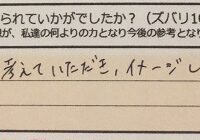 られていかがでしたか？（ズバリ10
が、私達の何よりの力となり今後の参考となり
考えていただき，イージし